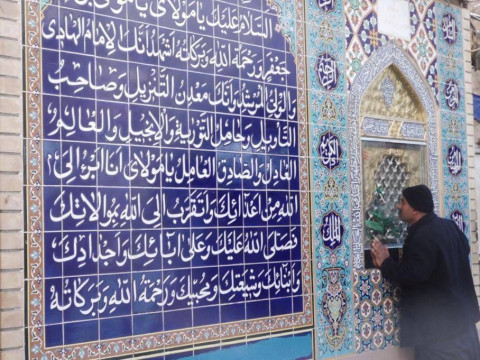 السَّلَامُ عَلَيْكَ يَا مَوْلَايَ يَا مُوسَى بْنَ
جَعْفَرٍ وَرَحْمَةُ اللهِ وَبَرَكَاتُهُ اَشْهَدُ اَنَّكَ الْاِمَامُ الْهَادِي
وَالْوَلِيُّ الْمُرْشِدُ وَاَنَّكَ مَعْدِنُ التَّنْزِيلِ وَصَاحِبُ
التَّأْوِيلِ وَحَامِلُ التَّوْرٰيةِ وَالْاِنْجِيلِ وَالْعَالِمُ
الْعَادِلُ وَالصَّادِقُ الْعَامِلُ يَا مَوْلَايَ اَنَا اَبْرَءُ اِلَى
اللهِ مِنْ اَعْدَائِكَ وَاَتَقَرَّبُ اِلَى اللهِ بِمُوَالَاتِكَ
فَصَلَّى اللهُ عَلَيْكَ وَعَلَى اٰبَائِكَ وَاَجْدَادِكَ
وَاَبْنَائِكَ وَشِيعَتِكَ وَمُحِبِّيكَ وَرَحْمَةُ اللهِ وَبَرَكَاتُهُ